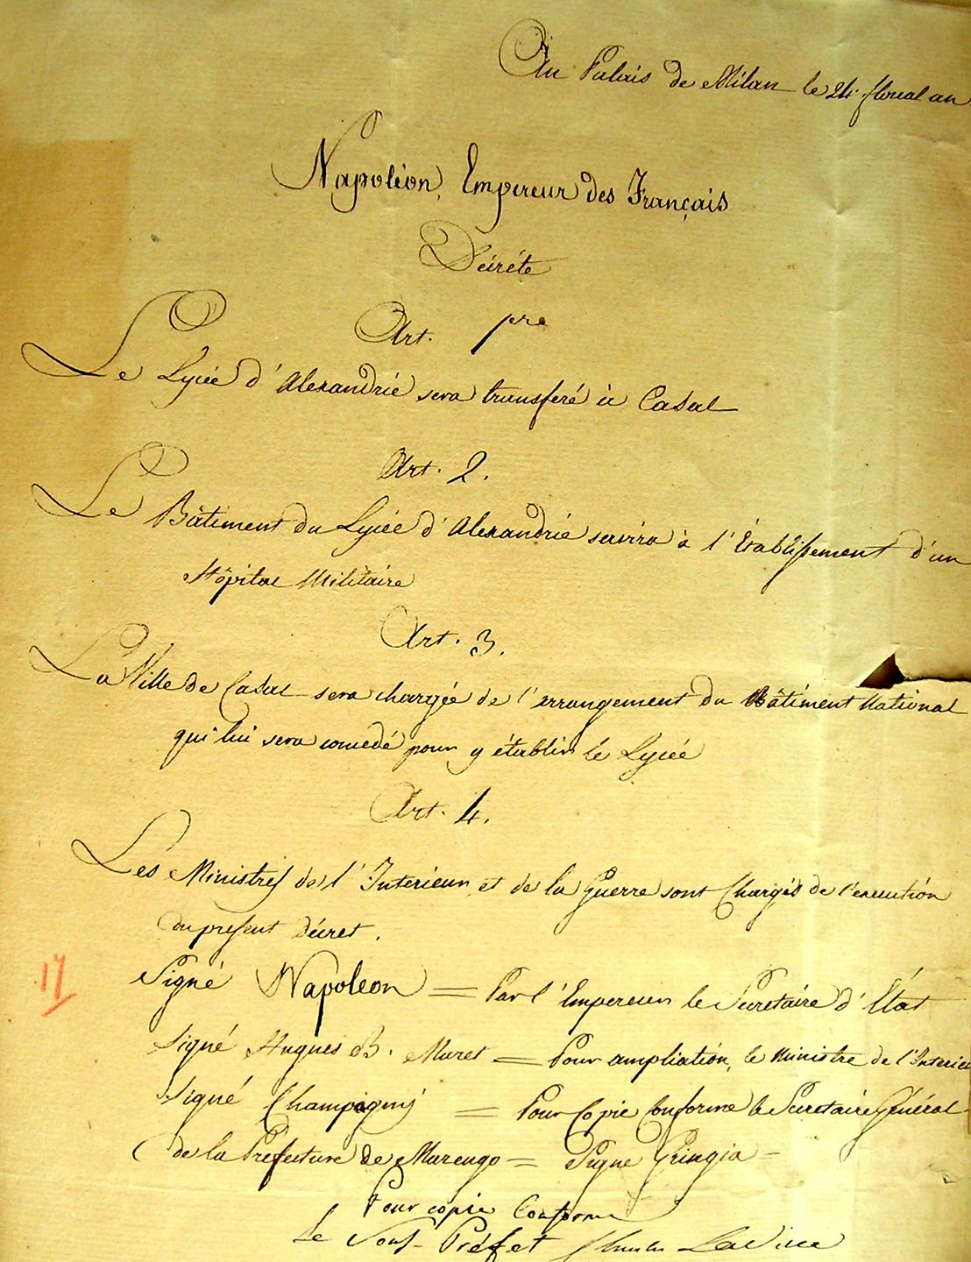 Au Palais de Milan le 24 floreal an
Napoléon, Empereur des Français
Décréte
Art. 1re
Le Lycée d'Alexandrie sera transferé à Casal
Art. 2.
Le Bâtiment du Lycée d'Alexandrie servira à l'établissement d'un
Hôpital Militaire
Art. 3.
La Ville de Casal sera chargée de l'arrangement du Bâtiment National
qui lui sera concedé pour y établir le Lycée
Art. 4.
Les Ministres de l'Interieur et de la Guerre sont Chargés de l'execution
du present décret.
17
Signé Napoléon = Par l'Empereur le Secretaire d'État
Signé Hugues B. Maret = Pour ampliation, le Ministre de l'Interieu
Signé Champagny = Pour Copie Conforme le Secretaire Général
de la Préfecture de Marengo = Signe
Pour copie Conforme
Le Sous-Préfet